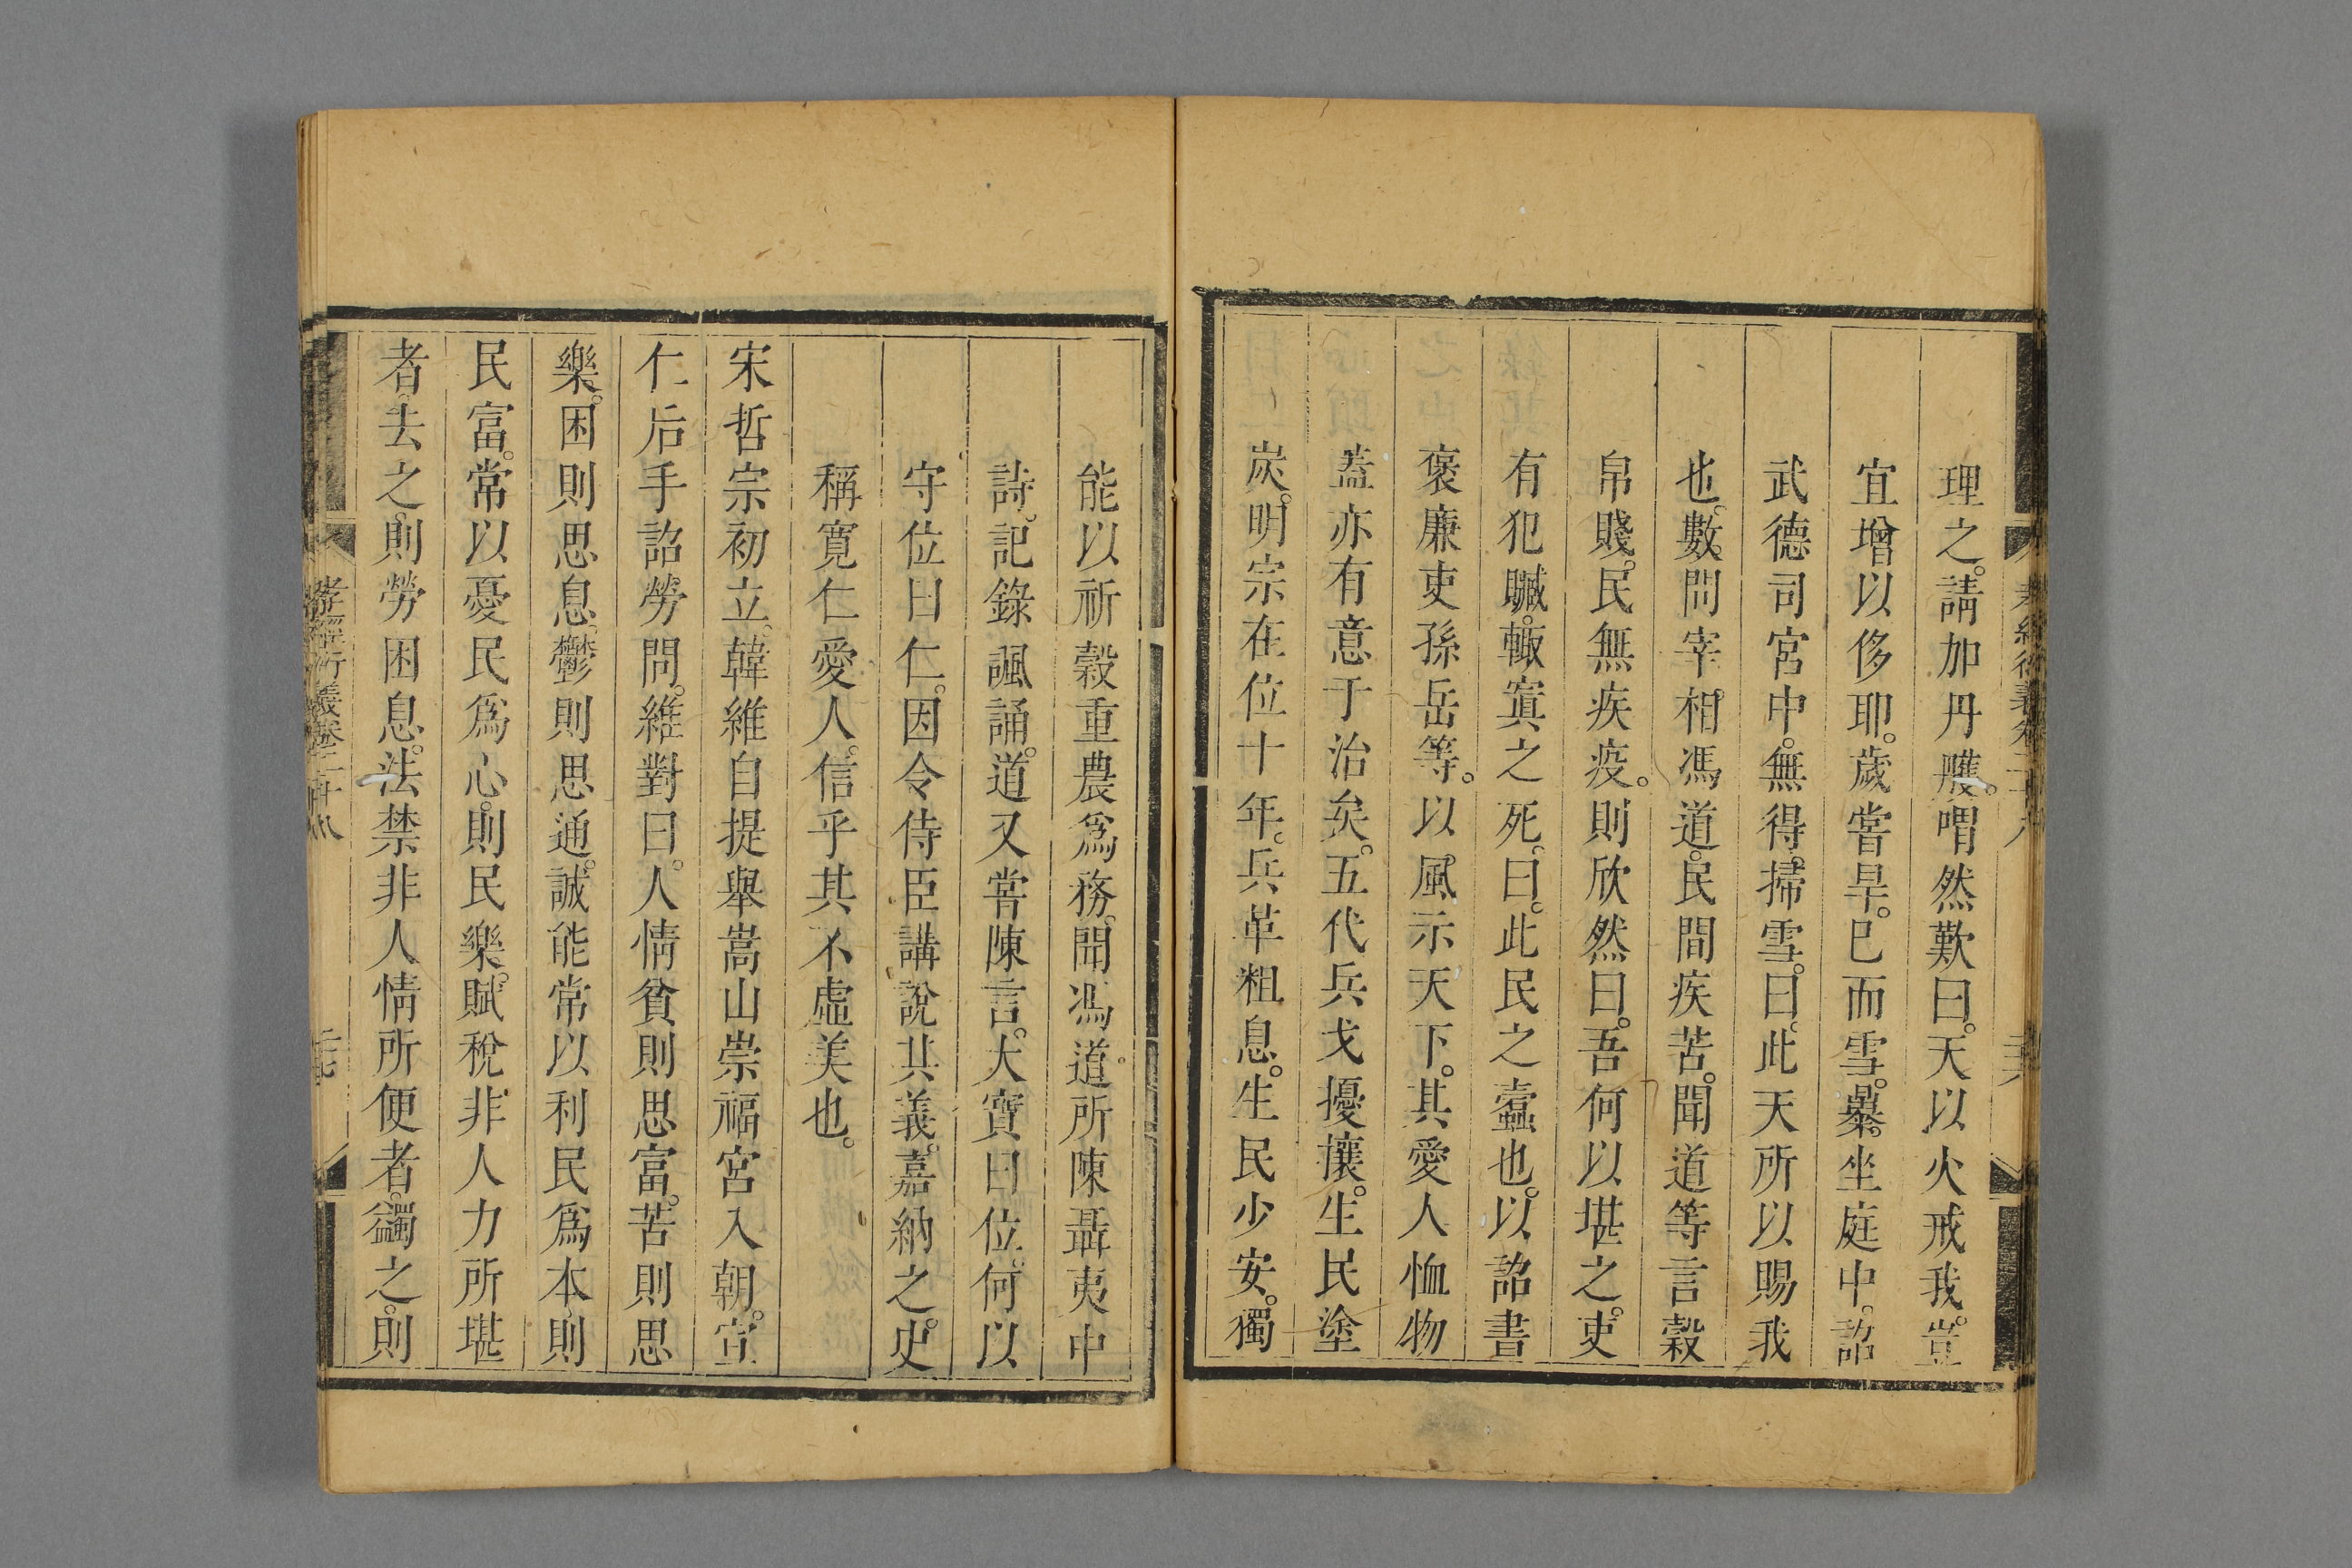 理之。請加丹雘。喟然歎曰。天以火戒我。豈
宜增以侈耶。歲嘗旱。已而雪。暴坐庭中。詔
武德司宮中。無得掃雪。曰。此天所以賜我
也。數問宰相馮道。民間疾苦。聞道等言穀
帛賤。民無疾疫。則欣然曰。吾何以堪之。吏
有犯贓。輒寘之死。曰。此民之蠹也。以詔書
褒廉吏孫岳等。以風示天下。其愛人恤物
蓋亦有意于治矣。五代兵戈擾攘。生民塗
炭。明宗在位十年。兵革粗息。生民少安。獨
能以祈穀重農爲務。聞馮道所陳聶夷中
詩。記錄諷誦。道又嘗陳言。大寶曰位。何以
守位曰仁。因令侍臣講說其義。嘉納之。史
稱寬仁愛人。信乎其不虛美也。
宋哲宗初立。韓維自提舉嵩山崇福宮入朝。宣
仁后手詔勞問。維對曰。人情貧則思富。苦則思
樂。困則思息。鬱則思通。誠能常以利民爲本。則
民富。常以憂民爲心。則民樂。賦稅非人力所堪
者。去之。則勞困息。法禁非人情所便者。蠲之。則